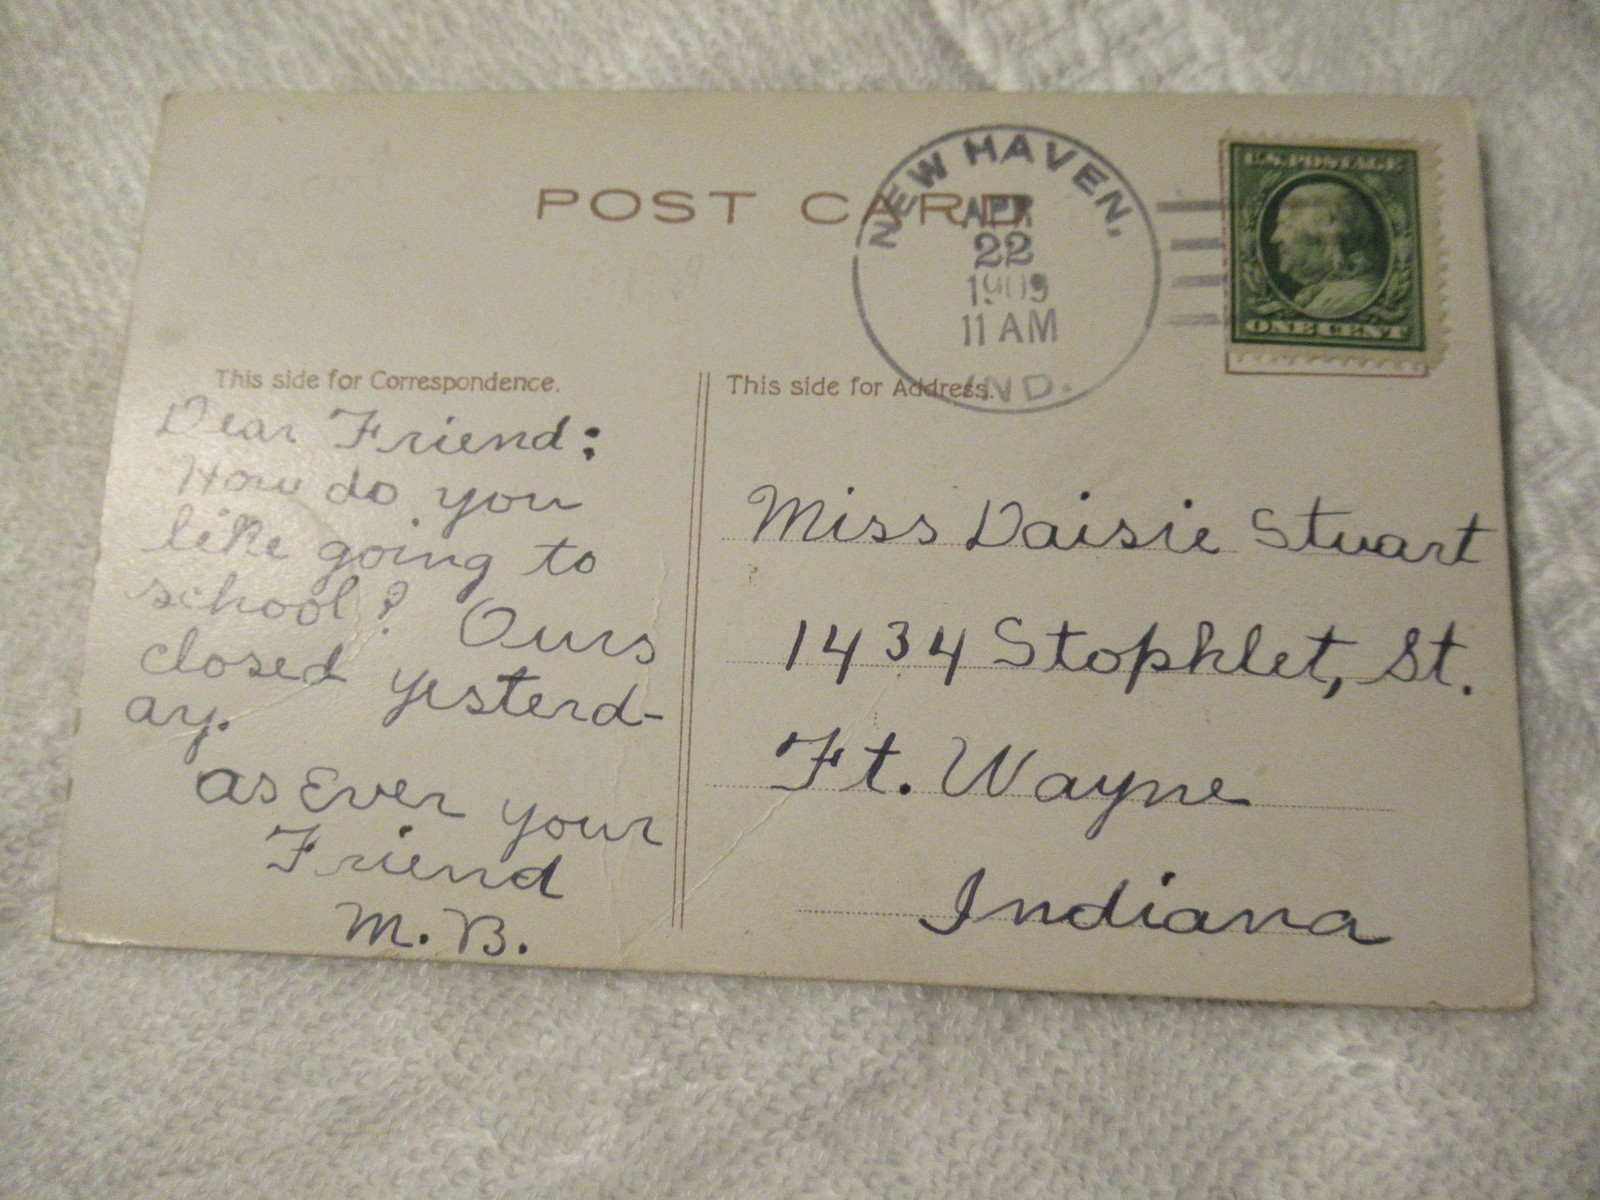 POST CARD
NEW HAVEN,
APR
22
1909
11 AM
IND.
U.S. POSTAGE
ONE CENT
This side for Correspondence.
Dear Friend:
How do you
like going to
school? Ours
closed yesterd-
ay.
as Ever your
Friend
M. B.
This side for Address.
Miss Daisie Stuart
1434 Stophlet, St.
Ft. Wayne
Indiana